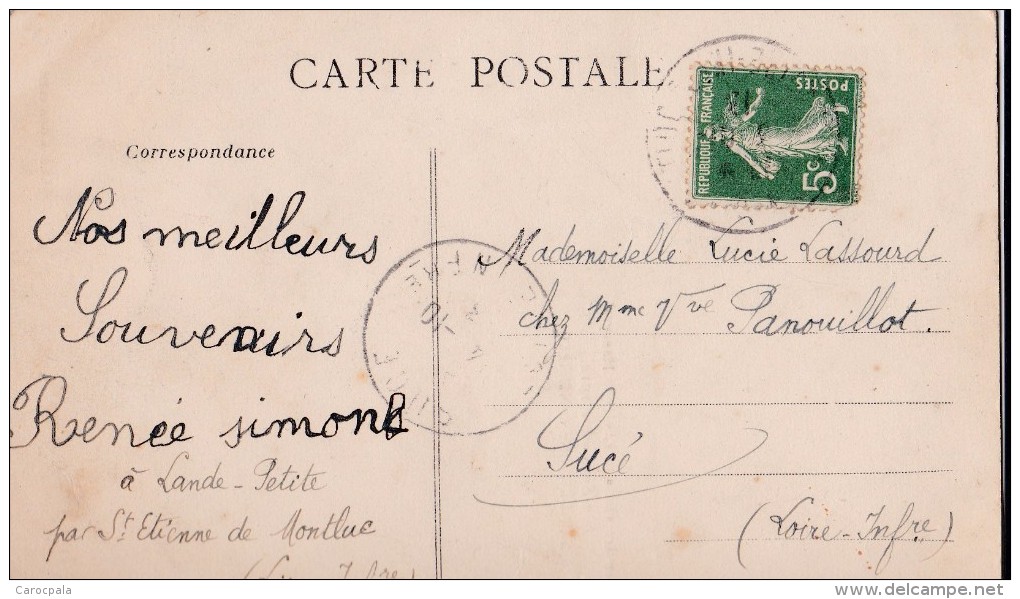 CARTE POSTALE
RÉPUBLIQUE FRANÇAISE
POSTES
5c
Correspondance
Nos meilleurs
Souvenirs
Renée Simone
à Lande-Petite
par St Etienne de Montluc
(Loire Infre)
Mademoiselle Lucie Lassourd
chez Mme Vve Panouillot.
Sucé
(Loire-Infre)
Carocpala
delcampe.net